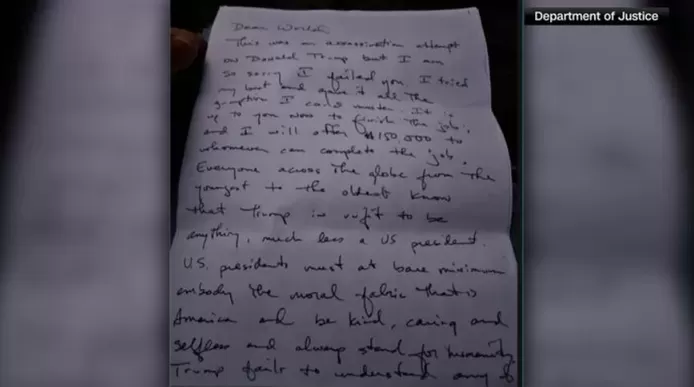 Department of Justice
Dear World,
This was an assassination attempt
on Donald Trump but I am
so sorry I failed you. I tried
my best and gave it all the
gumption I could muster. It is
up to you now to finish the job;
and I will offer $150,000 to
whomever can complete the job.
Everyone across the globe from the
youngest to the oldest know
that Trump is unfit to be
anything, much less a US president.
U.S. presidents must at bare minimum
embody the moral fabric that is
America and be kind, caring and
selfless and always stand for humanity.
Trump fails to understand any of